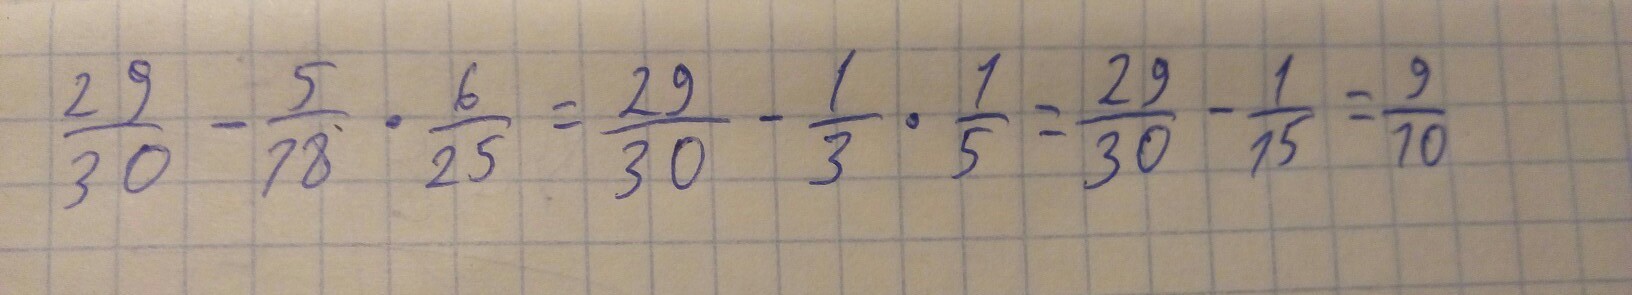 29/30 - 5/18 · 6/25 = 29/30 - 1/3 · 1/5 = 29/30 - 1/15 = 9/10